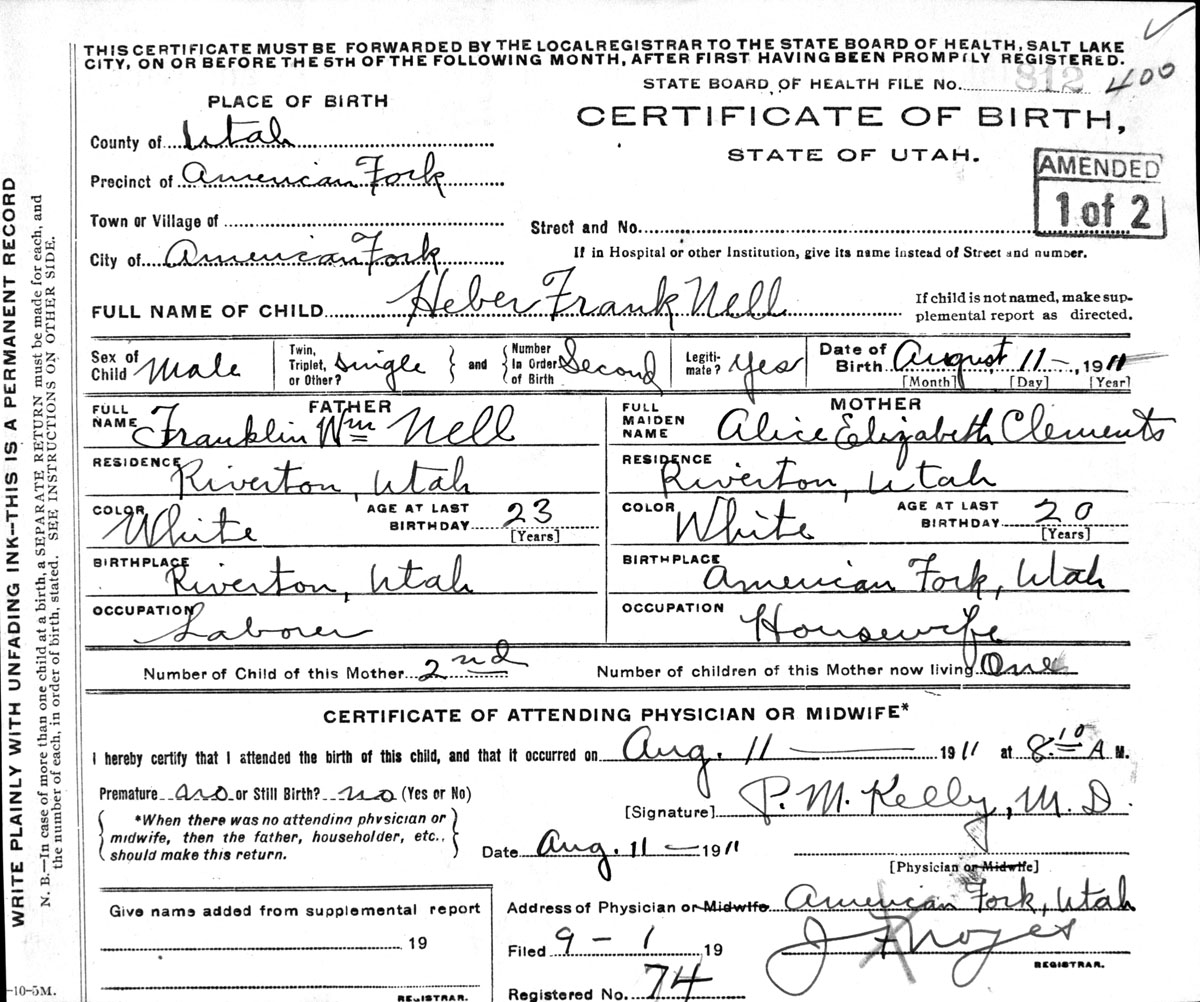 THIS CERTIFICATE MUST BE FORWARDED BY THE LOCAL REGISTRAR TO THE STATE BOARD OF HEALTH, SALT LAKE
CITY, ON OR BEFORE THE 5TH OF THE FOLLOWING MONTH, AFTER FIRST HAVING BEEN PROMPTLY REGISTERED.
STATE BOARD OF HEALTH FILE NO. 812 400
PLACE OF BIRTH
CERTIFICATE OF BIRTH,
STATE OF UTAH.
AMENDED
1 of 2
County of Utah
Precinct of American Fork
Town or Village of
Street and No.
City of American Fork
If in Hospital or other Institution, give its name instead of Street and number.
FULL NAME OF CHILD Heber Frank Nell
If child is not named, make sup-
plemental report as directed.
Sex of Child Male
Twin, Triplet, or Other? single
and
Number In Order of Birth Second
Legiti-mate? Yes
Date of Birth August 11 -, 1911
[Month] [Day] [Year]
FATHER
FULL NAME Franklin Wm Nell
RESIDENCE Riverton, Utah
COLOR White
AGE AT LAST BIRTHDAY 23
[Years]
BIRTHPLACE Riverton, Utah
OCCUPATION Laborer
MOTHER
FULL MAIDEN NAME Alice Elizabeth Clements
RESIDENCE Riverton, Utah
COLOR White
AGE AT LAST BIRTHDAY 20
[Years]
BIRTHPLACE American Fork, Utah
OCCUPATION Housewife
Number of Child of this Mother 2nd
Number of children of this Mother now living One
CERTIFICATE OF ATTENDING PHYSICIAN OR MIDWIFE*
I hereby certify that I attended the birth of this child, and that it occurred on Aug. 11 — 1911 at 8:10 A M.
Premature no or Still Birth? no (Yes or No)
[Signature] P. M. Kelly, M. D.
*When there was no attending physician or
midwife, then the father, householder, etc.,
should make this return.
Date Aug. 11 — 1911
[Physician or Midwife]
Give name added from supplemental report
19
REGISTRAR.
Address of Physician or Midwife American Fork, Utah
Filed 9 - 1 19
J F Noyes
REGISTRAR.
Registered No. 74
-10-5M.
WRITE PLAINLY WITH UNFADING INK--THIS IS A PERMANENT RECORD
N. B.—In case of more than one child at a birth, a SEPARATE RETURN must be made for each, and
the number of each, in order of birth, stated. SEE INSTRUCTIONS ON OTHER SIDE.